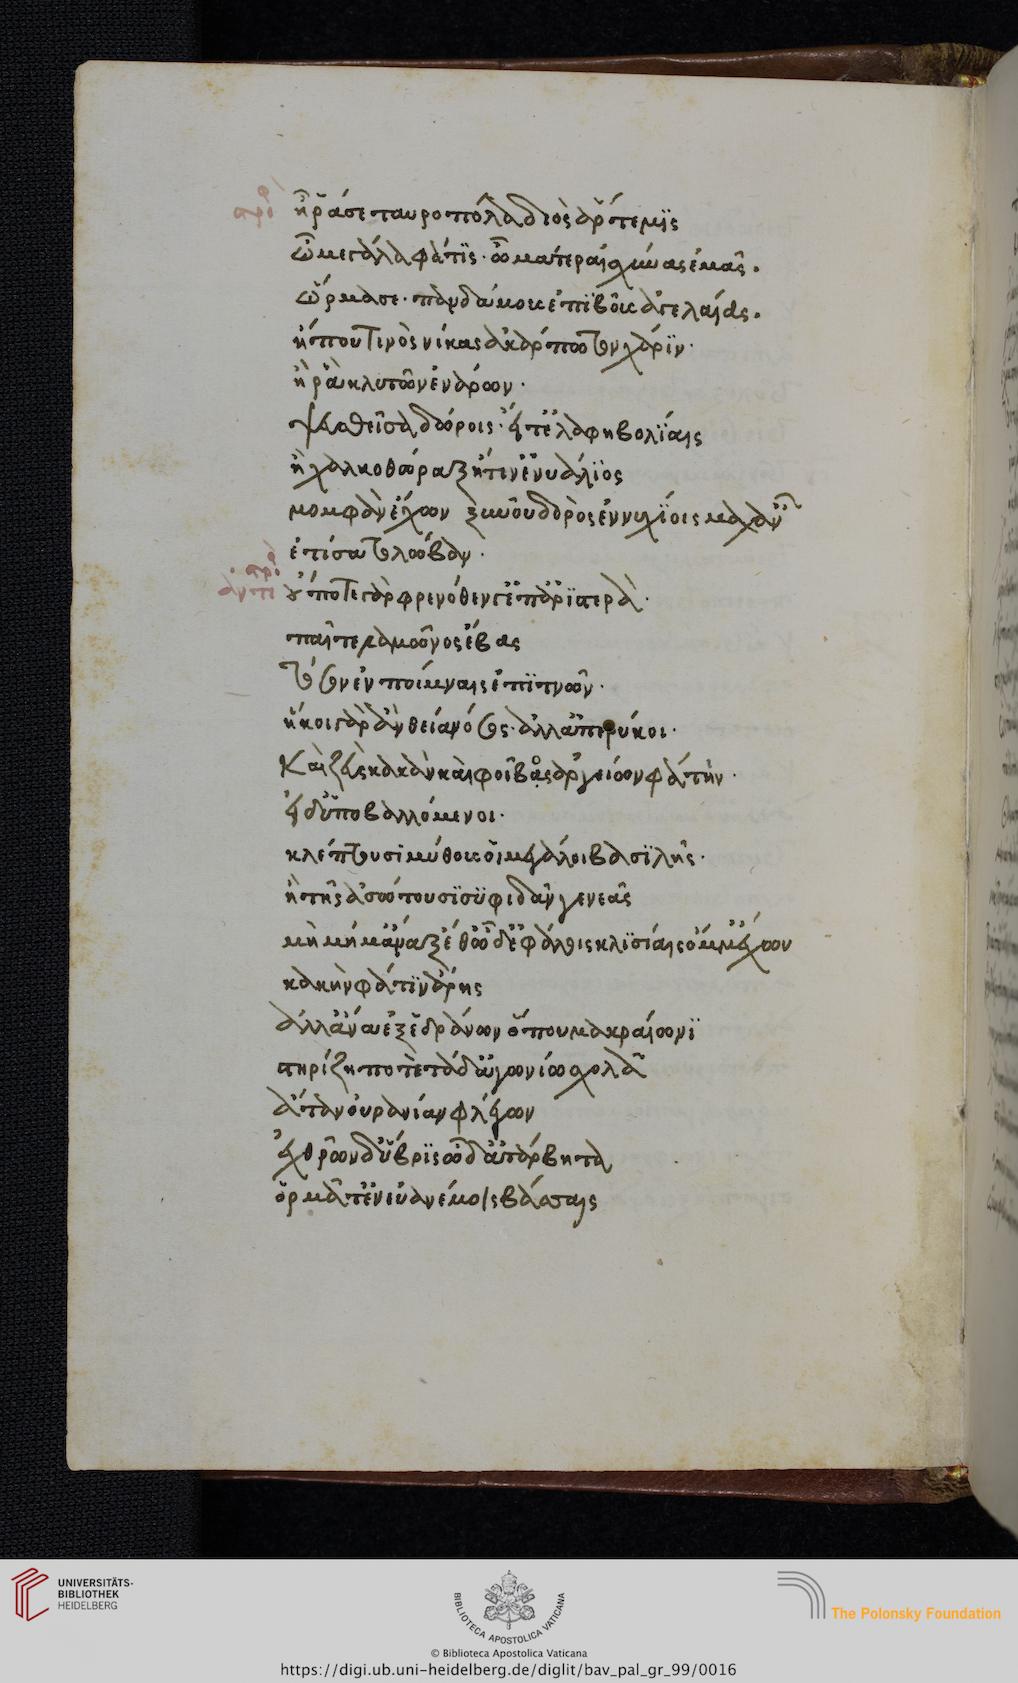 ἦ ῥά σε ταυροπόλα διὸς ἄρτεμϊς
ὦ μεγάλα φάτϊς· ὦ μᾶτερ αἰσχύνας ἐμᾶς.
ὥρμασε· πανδάμους ἐπὶ βοῦς ἀγελαίας.
ἤ που τινὸς νίκας ἀκάρπωτον χάρϊν·
ἤ ῥα κλυτῶν ἐνάρων·
ψευσθεῖσα δώροις· εἴτ' ἐλαφηβολΐαις
ἢ χαλκοθώραξ ἤ τιν' ἐνυάλϊος
μομφὰν ἔχων ξυνοῦ δορὸς ἐννυχΐοις μαχαναῖς
ἐτίσατο λώβαν·
οὔ ποτε γὰρ φρενόθεν γ' ἐπ' ἀρϊστερὰ·
παῖ τελαμῶνος ἔβας
τόσσον ἐν ποίμναις πϊτνῶν·
ἥκοι γὰρ ἂν θεία νόσος· ἀλλ' ἀπερύκοι·
καὶ ζεὺς κακὰν καὶ φοῖβος ἀργείων φάτιν·
εἰ δ' ὑποβαλλόμενοι·
κλέπτουσι μύθους οἱ μεγάλοι βασϊλῆς·
ἢ τῆς ἀσώτου σϊσϋφιδᾶν γενεᾶς
μὴ μή μ' ἄναξ ἔθ' ὧδ' ἐφάλοις κλϊσίαις ὄμμ' ἔχων
κακὴν φάτϊν ἄρης
ἀλλ' ἄνα ἐξ ἑδράνων ὅπου μακραίωνϊ
στηρίζῃ ποτὲ τᾷδ' ἀγωνίω σχολᾶ
ἄταν οὐρανίαν φλέγων
ἐχθρῶν δ' ὕβρϊς ὧδ' ἀτάρβητα
ὁρμᾶτ' ἐν εὐανέμοις βάσσαις
UNIVERSITÄTS-
BIBLIOTHEK
HEIDELBERG
BIBLIOTECA APOSTOLICA VATICANA
The Polonsky Foundation
© Biblioteca Apostolica Vaticana
https://digi.ub.uni-heidelberg.de/diglit/bav_pal_gr_99/0016